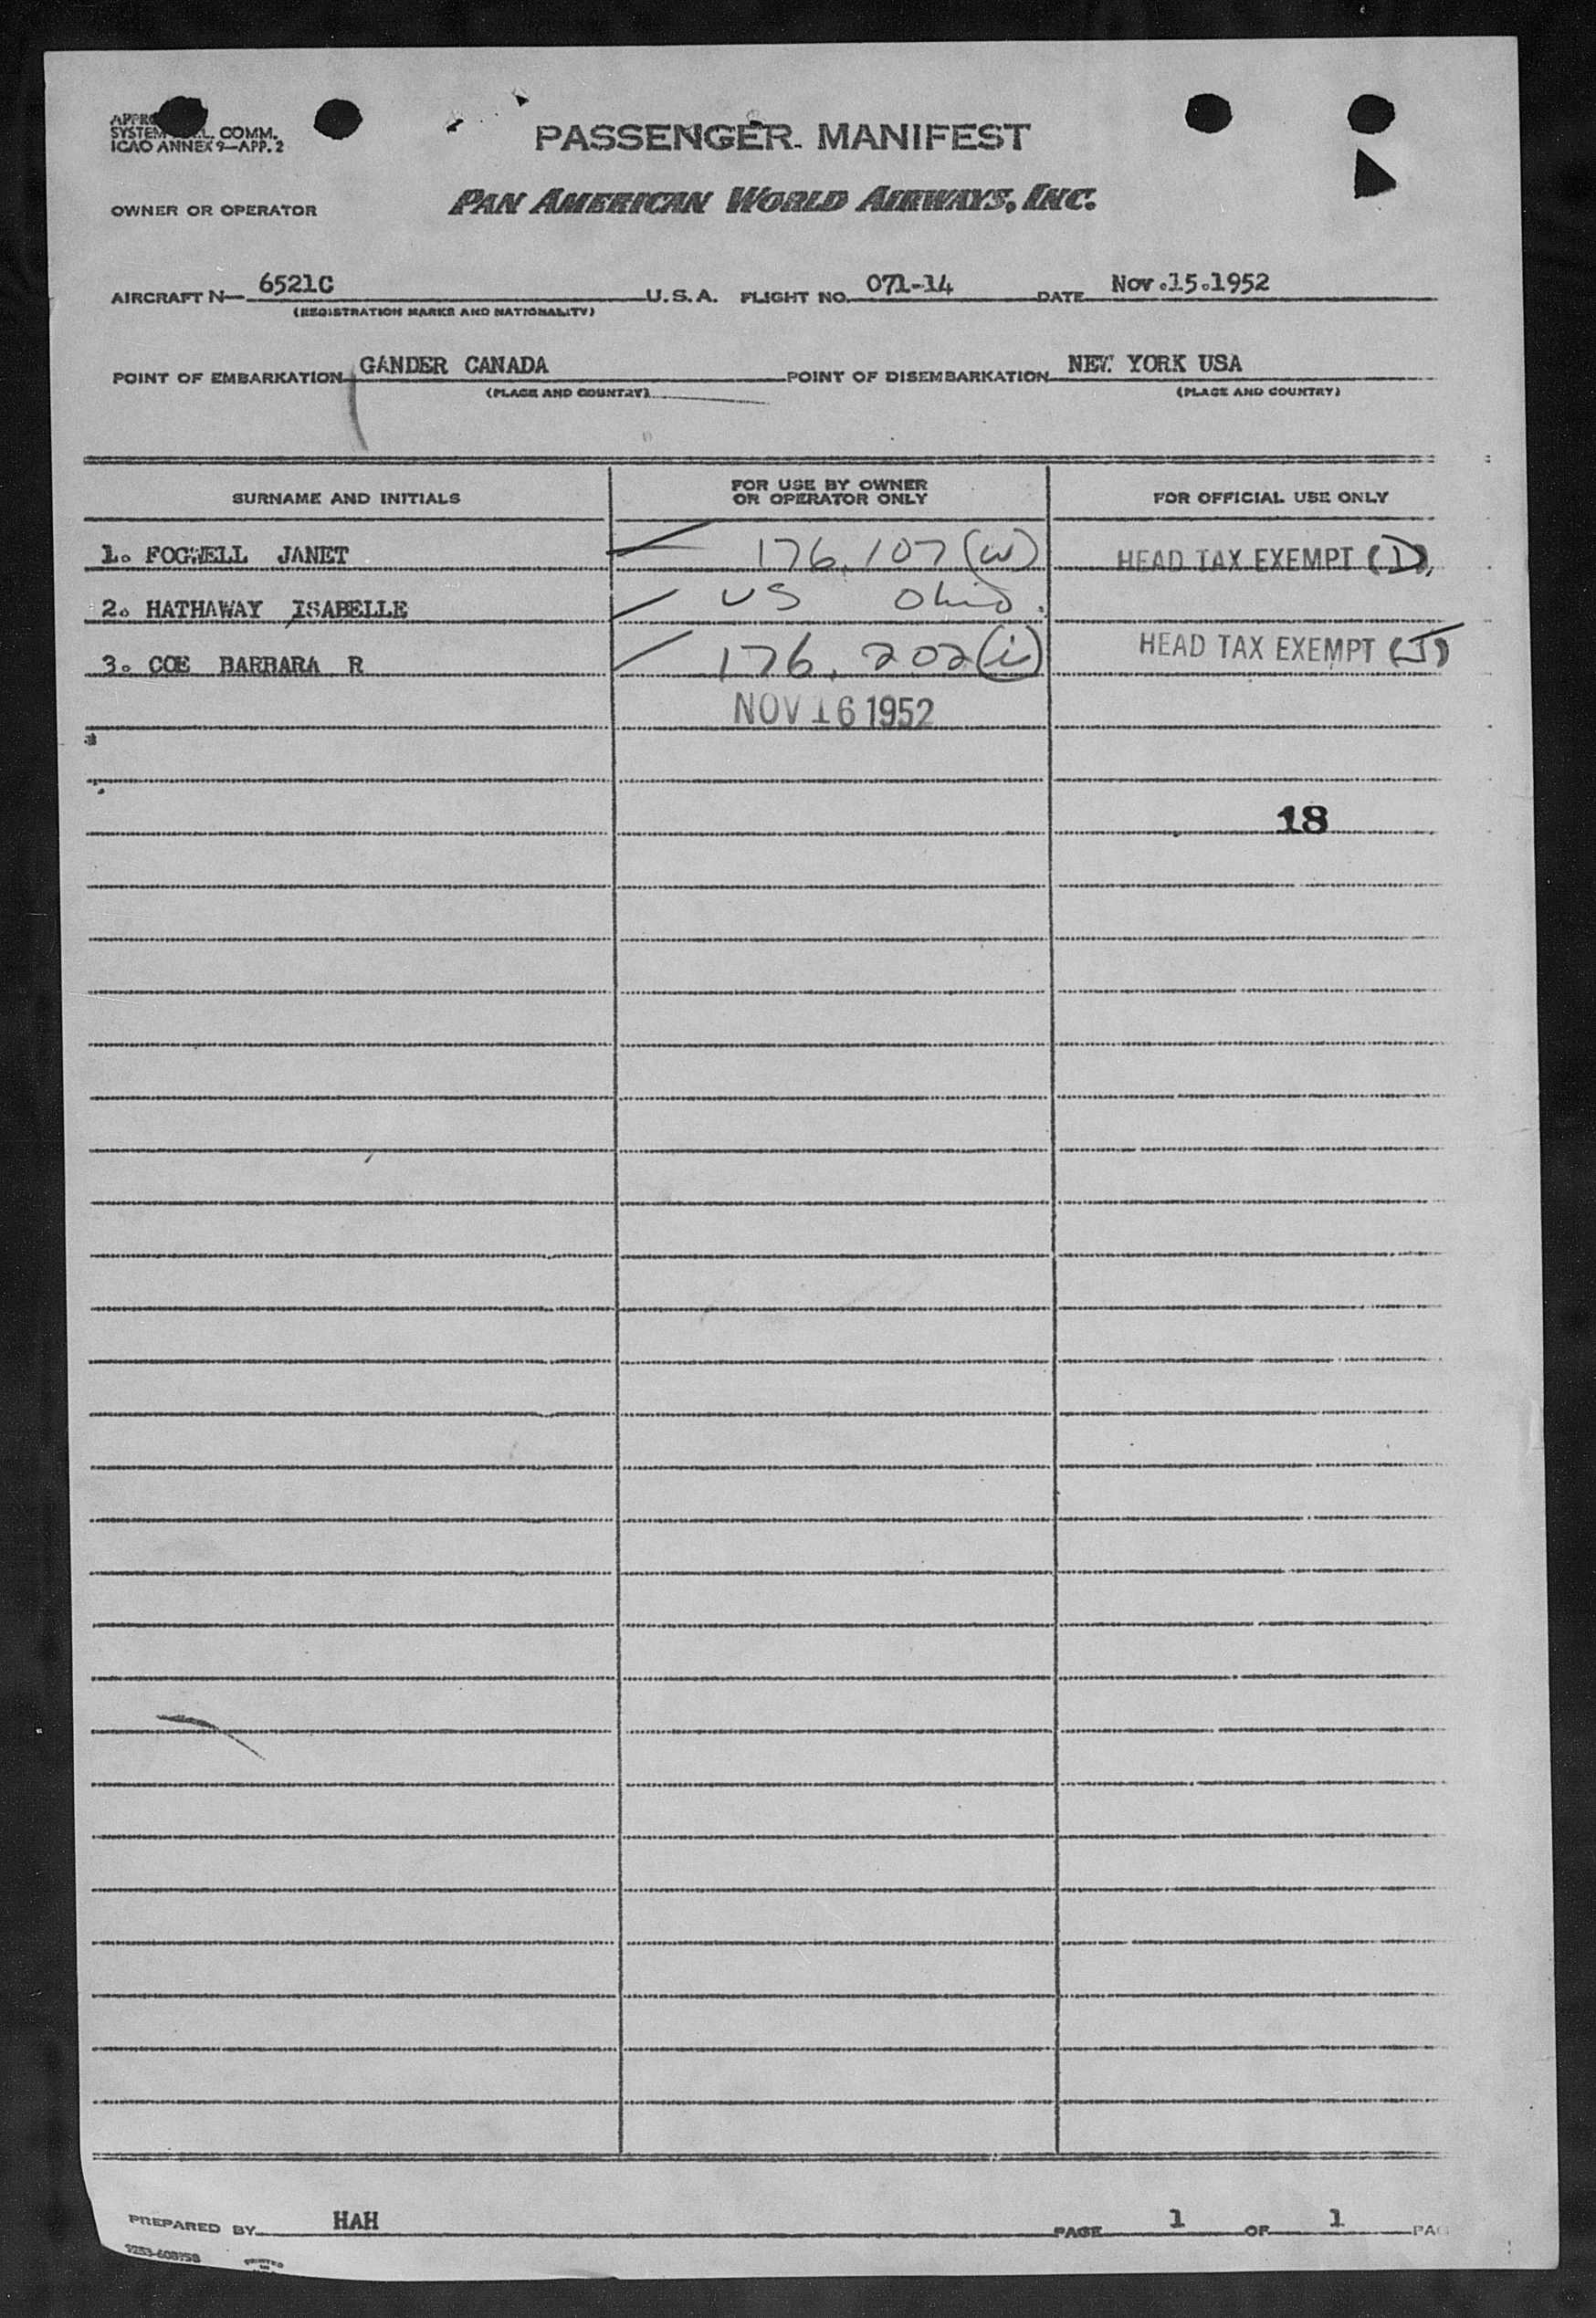 PASSENGER MANIFEST
SYSTEM COMM.
ICAO ANNEX 9—APP. 2
OWNER OR OPERATOR PAN AMERICAN WORLD AIRWAYS, INC.
AIRCRAFT N— 6521C U.S.A. FLIGHT NO. 071-14 DATE Nov.15.1952
(REGISTRATION MARKS AND NATIONALITY)
POINT OF EMBARKATION GANDER CANADA POINT OF DISEMBARKATION NEW YORK USA
(PLACE AND COUNTRY) (PLACE AND COUNTRY)
SURNAME AND INITIALS FOR USE BY OWNER OR OPERATOR ONLY FOR OFFICIAL USE ONLY
1. FOGWELL JANET 176.107 (W) HEAD TAX EXEMPT (I)
2. HATHAWAY ISABELLE US Ohio.
3. COE BARBARA R 176.202 (i) HEAD TAX EXEMPT (J)
NOV 16 1952
18
PREPARED BY HAH PAGE 1 OF 1